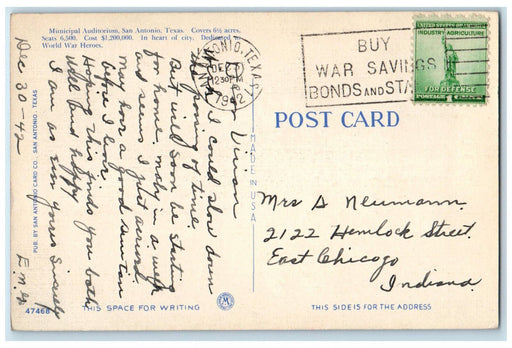 Municipal Auditorium, San Antonio, Texas. Covers 6½ acres.
Seats 6,500. Cost $1,200,000. In heart of city. Dedicated to
World War Heroes.
Dec 30-42
Vivian
I could slow down
the passing of time.
But will soon be starting
for home. maby in a week
and seems I just arrived.
may hear a good sermon
before I leave.
Hoping this finds you both
well and happy
I am as ever yours Sincerely
E.M.
PUB. BY SAN ANTONIO CARD CO., SAN ANTONIO, TEXAS
47468
THIS SPACE FOR WRITING
MADE IN U.S.A.
SAN ANTONIO, TEXAS
DEC
1230 PM
1942
BUY
WAR SAVINGS
BONDS AND STA
UNITED STATES OF AMERICA
INDUSTRY AGRICULTURE
FOR DEFENSE
POSTAGE 1¢
POST CARD
Mrs A Neumann
2122 Hemlock Street.
East Chicago
Indiana.
THIS SIDE IS FOR THE ADDRESS